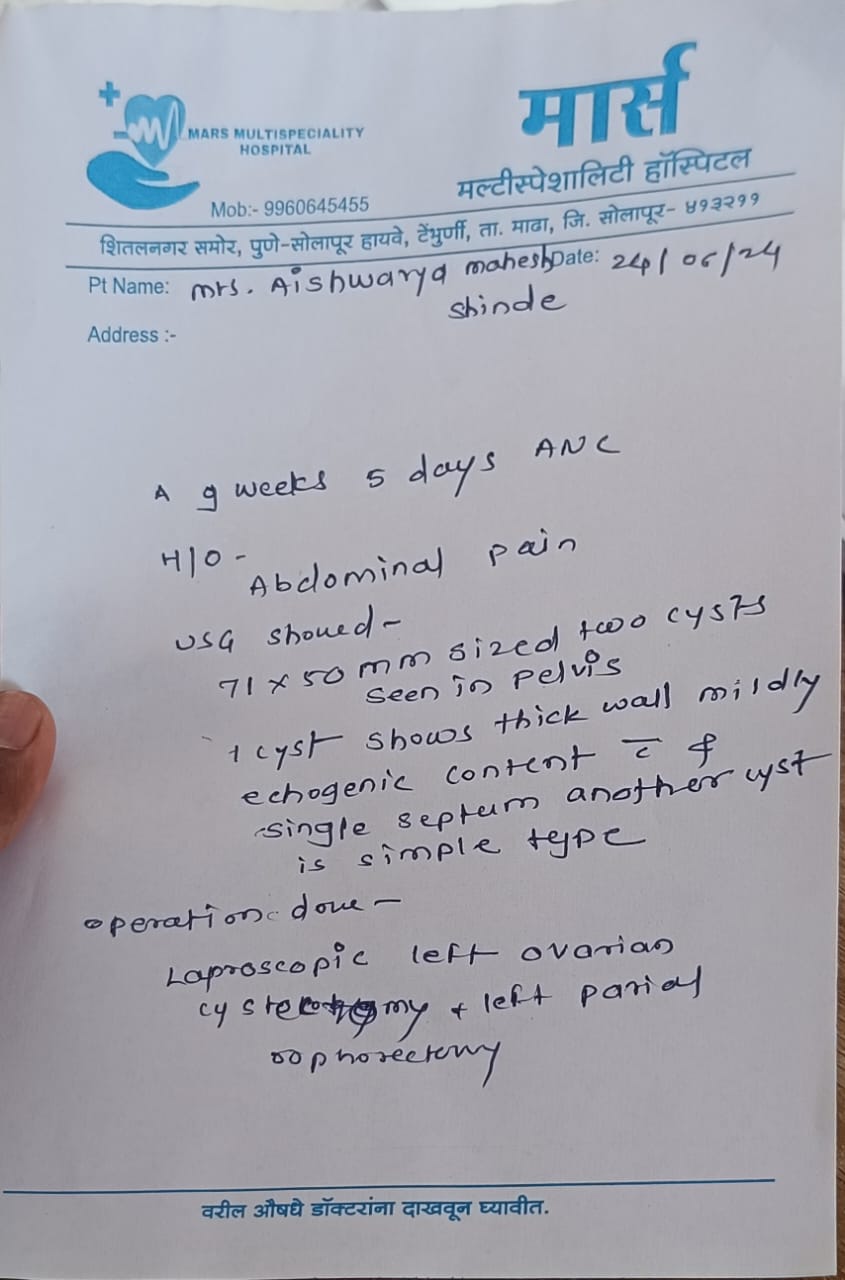 मार्स
MARS MULTISPECIALITY
HOSPITAL
मल्टीस्पेशालिटी हॉस्पिटल
Mob:- 9960645455
शितलनगर समोर, पुणे-सोलापूर हायवे, टेंभुर्णी, ता. माढा, जि. सोलापूर- ४१३२११
Pt Name: mrs. Aishwarya mahesh Date: 24/06/24
shinde
Address :-
A 9 weeks 5 days ANC
H/O -
Abdominal pain
USG showed -
71 x 50 mm sized two cysts
seen in pelvis
1 cyst shows thick wall mildly
echogenic content c̅ &
single septum another cyst
is simple type
operation done -
Laproscopic left ovarian
cystectomy + left parial
oophorectomy
वरील औषधे डॉक्टरांना दाखवून घ्यावीत.